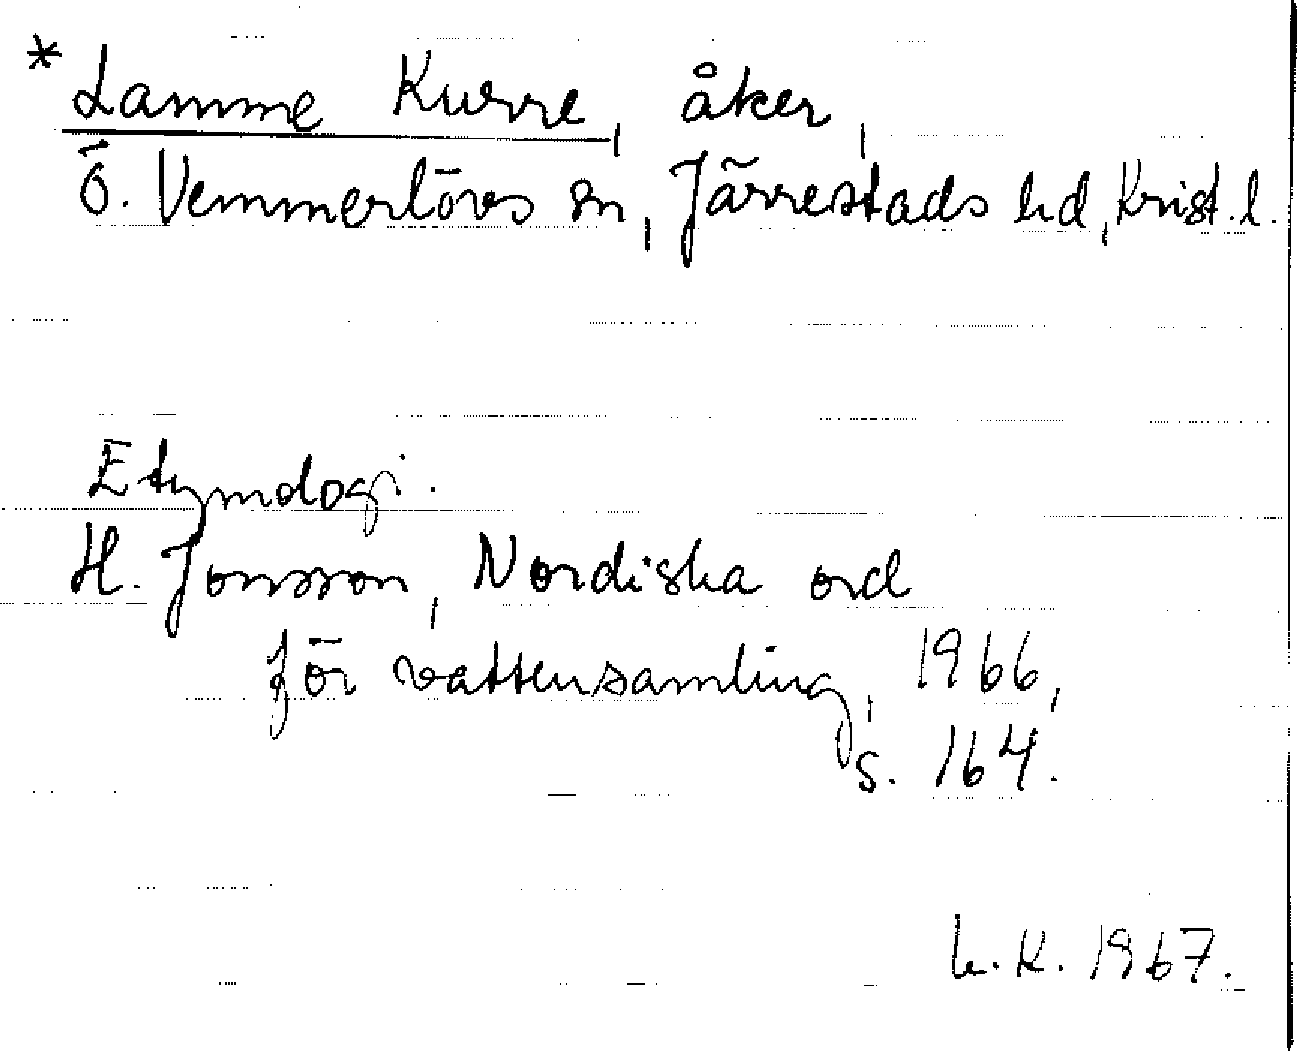 * Lamme Kurre, åker,
Ö. Vemmerlövs sn, Järrestads hd, Krist. l.
Etymologi.
H. Jonsson, Nordiska ord
för vattensamling, 1966,
s. 164.
L. K. 1967.